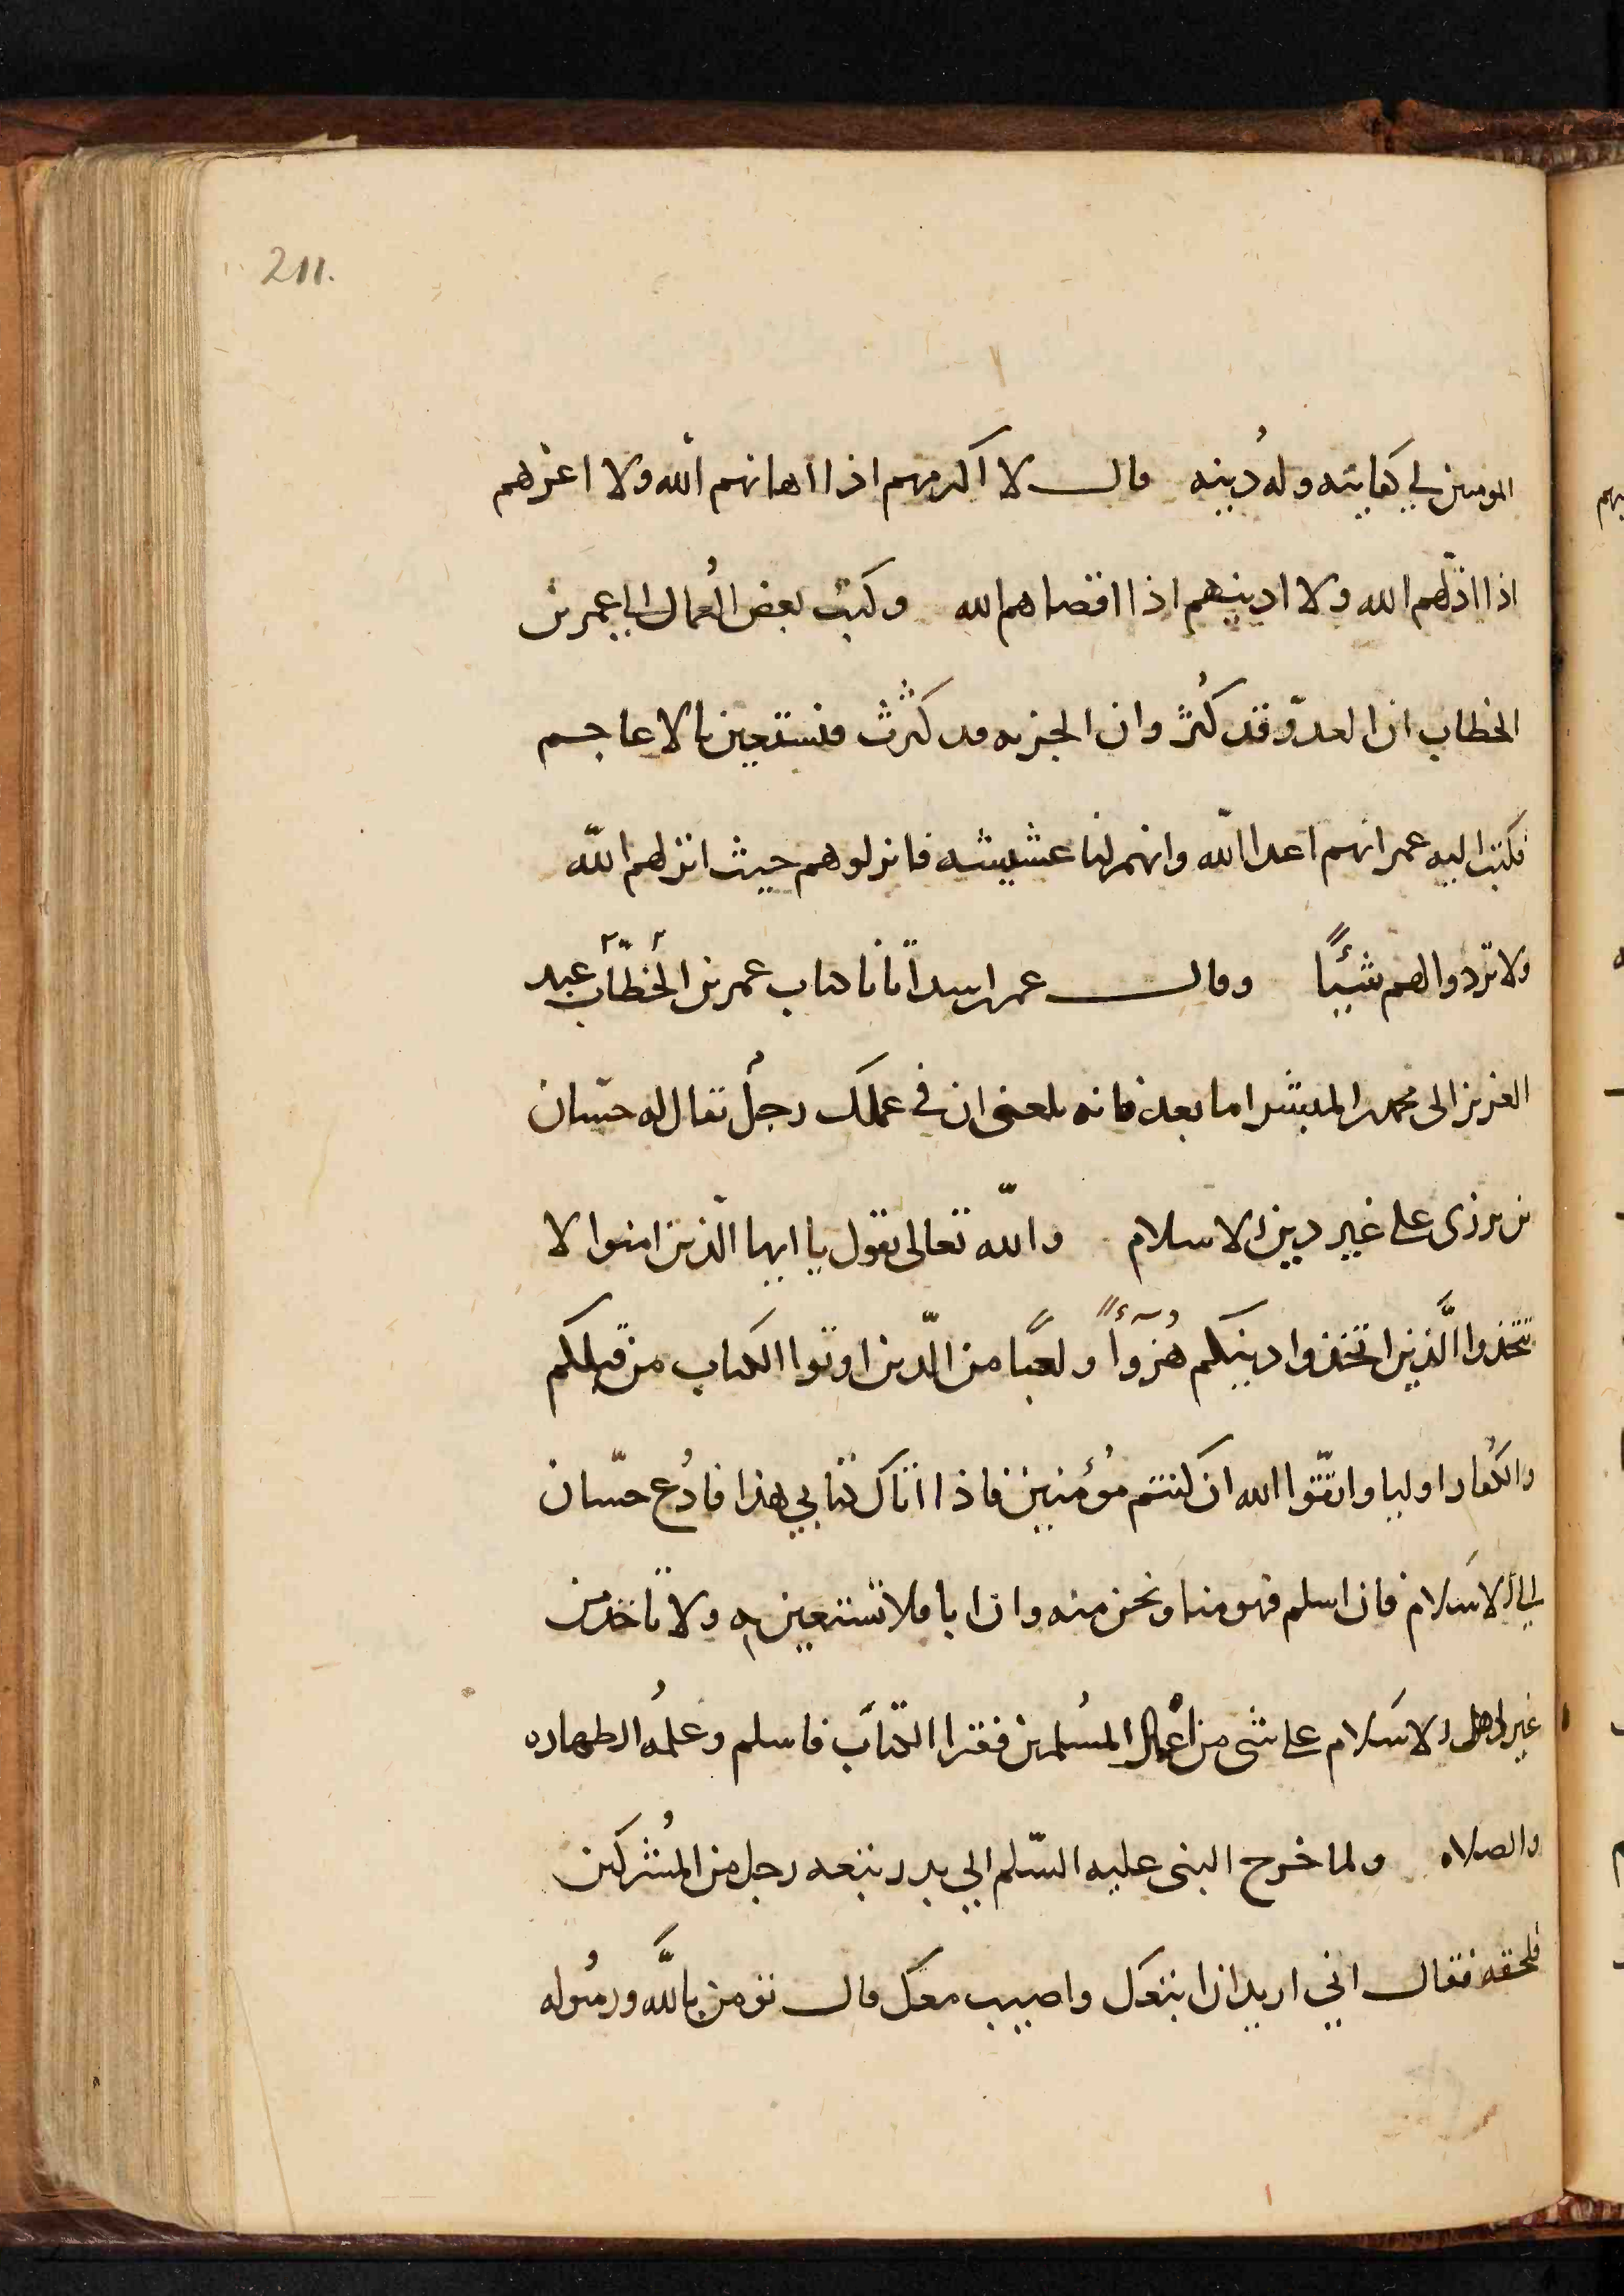 211.
المومنين لي كتابته وله دينه قال لا اكرمهم اذا اهانهم الله ولا اعزهم
اذا اذلهم الله ولا ادنيهم اذا اقصاهم الله وكتب بعض العمال الي عمر بن
الخطاب ان العدوّ قد كثر وان الجزيه قد كثرت فنستعين بالاعاجم
فكتب اليه عمر انهم اعدا الله وانهم لنا غششه فانزلوهم حيث انزلهم الله
ولا تردوا لهم شيئًا وقال عمر بن اسد اتانا كتاب عمر بن الخطّاب عبد
العزيز الى محمد المبتشر اما بعد فانه بلغنى ان فى عملك رجلٌ يقال له حسّان
بن برزى على غير دين الاسلام والله تعالى يقول يا ايها الّذين امنوا لا
تتخذوا الَّذين اتخذوا دينكم هُزوًا ولعبًا من الّذين اوتوا الكتاب من قبلكم
والكُفار اوليا واتّقوا الله ان كنتم مُؤمنين فاذا اتاك كتابي هذا فادُع حسّان
الي الاسلام فان اسلم فهو منا ونحن منه وان ابا فلا تستعين به ولا تاخذ من
غير اهل الاسلام على شى من اعمال المسُلمين فقرا الكتاب فاسلم وعلمُه الطهاره
والصلاه ولما خرج النبى عليه السّلم الي بدر تبعه رجل من المُشركين
فلحقه فقال اني اريد ان اتبعك واصيب معك قال تومن بالله ورسُوله